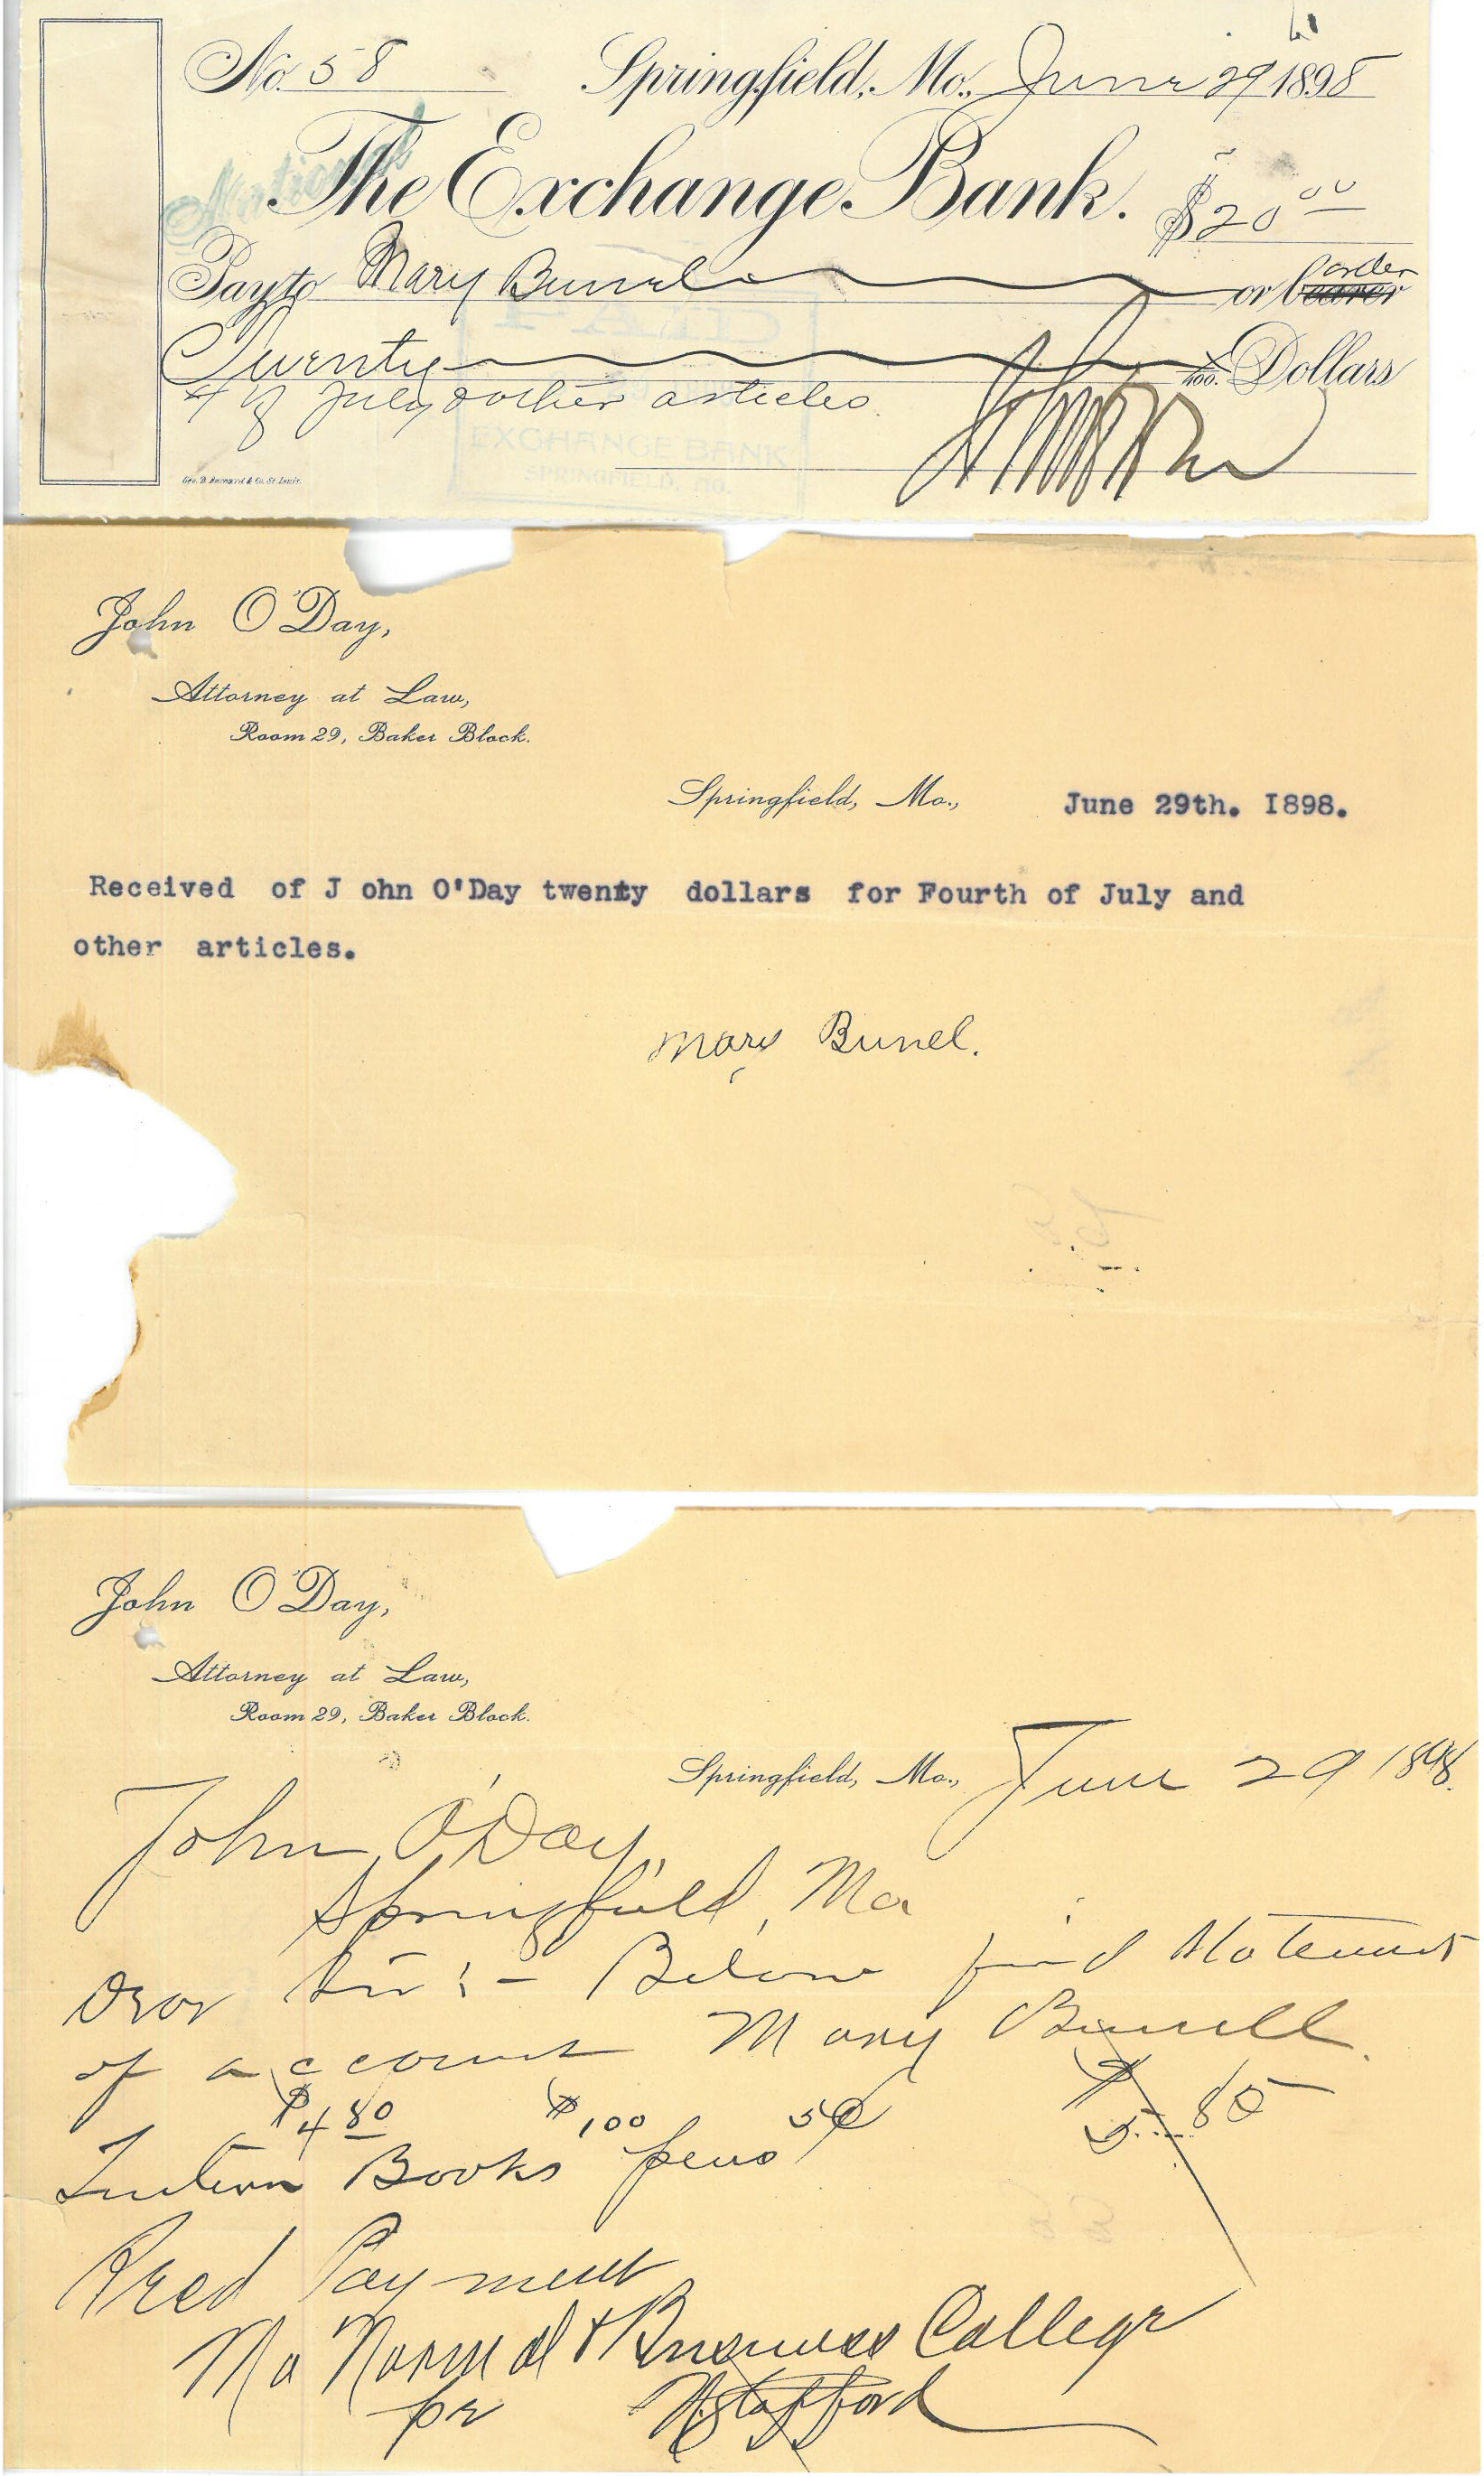 No. 58 Springfield, Mo., June 29 1898
National
The Exchange Bank. $20 00
Pay to Mary Bunel or bearer order
Twenty /100. Dollars
4 of July & other articles
EXCHANGE BANK
SPRINGFIELD, MO.
Geo. D. Barnard & Co. St. Louis.
John O'Day,
Attorney at Law,
Room 29, Baker Block.
Springfield, Mo., June 29th. I898.
Received of J ohn O'Day twenty dollars for Fourth of July and
other articles.
Mary Bunel.
John O'Day,
Attorney at Law,
Room 29, Baker Block.
Springfield, Mo., June 29 1898.
John O'Day,
Springfield, Mo
Dear Sir:- Below find statement
of account Mary Bunell.
$4 80 $1 00 5¢ $5.85
Tuition Books pens
Recd Payment
Mo Normal & Business College
pr Stafford